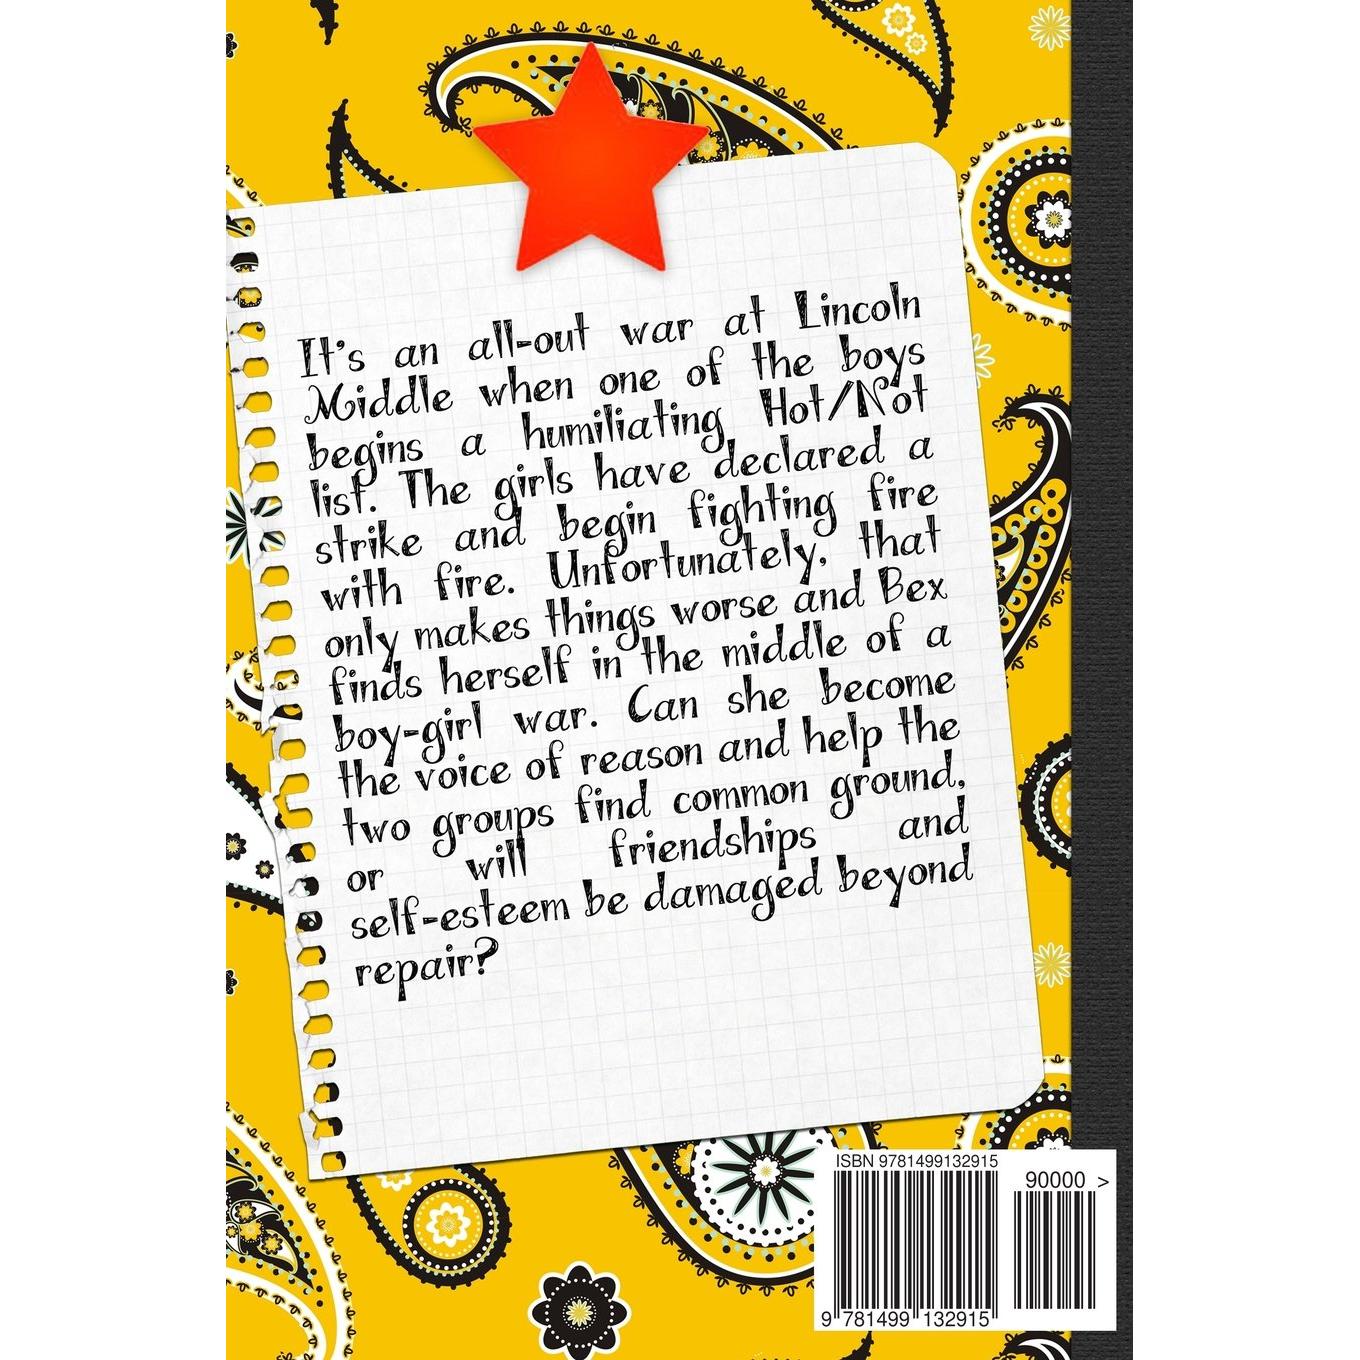 It's an all-out war at Lincoln
Middle when one of the boys
begins a humiliating Hot/Not
list. The girls have declared a
strike and begin fighting fire
with fire. Unfortunately, that
only makes things worse and Bex
finds herself in the middle of a
boy-girl war. Can she become
the voice of reason and help the
two groups find common ground,
or will friendships and
self-esteem be damaged beyond
repair?
ISBN 9781499132915
90000 >
9 781499 132915